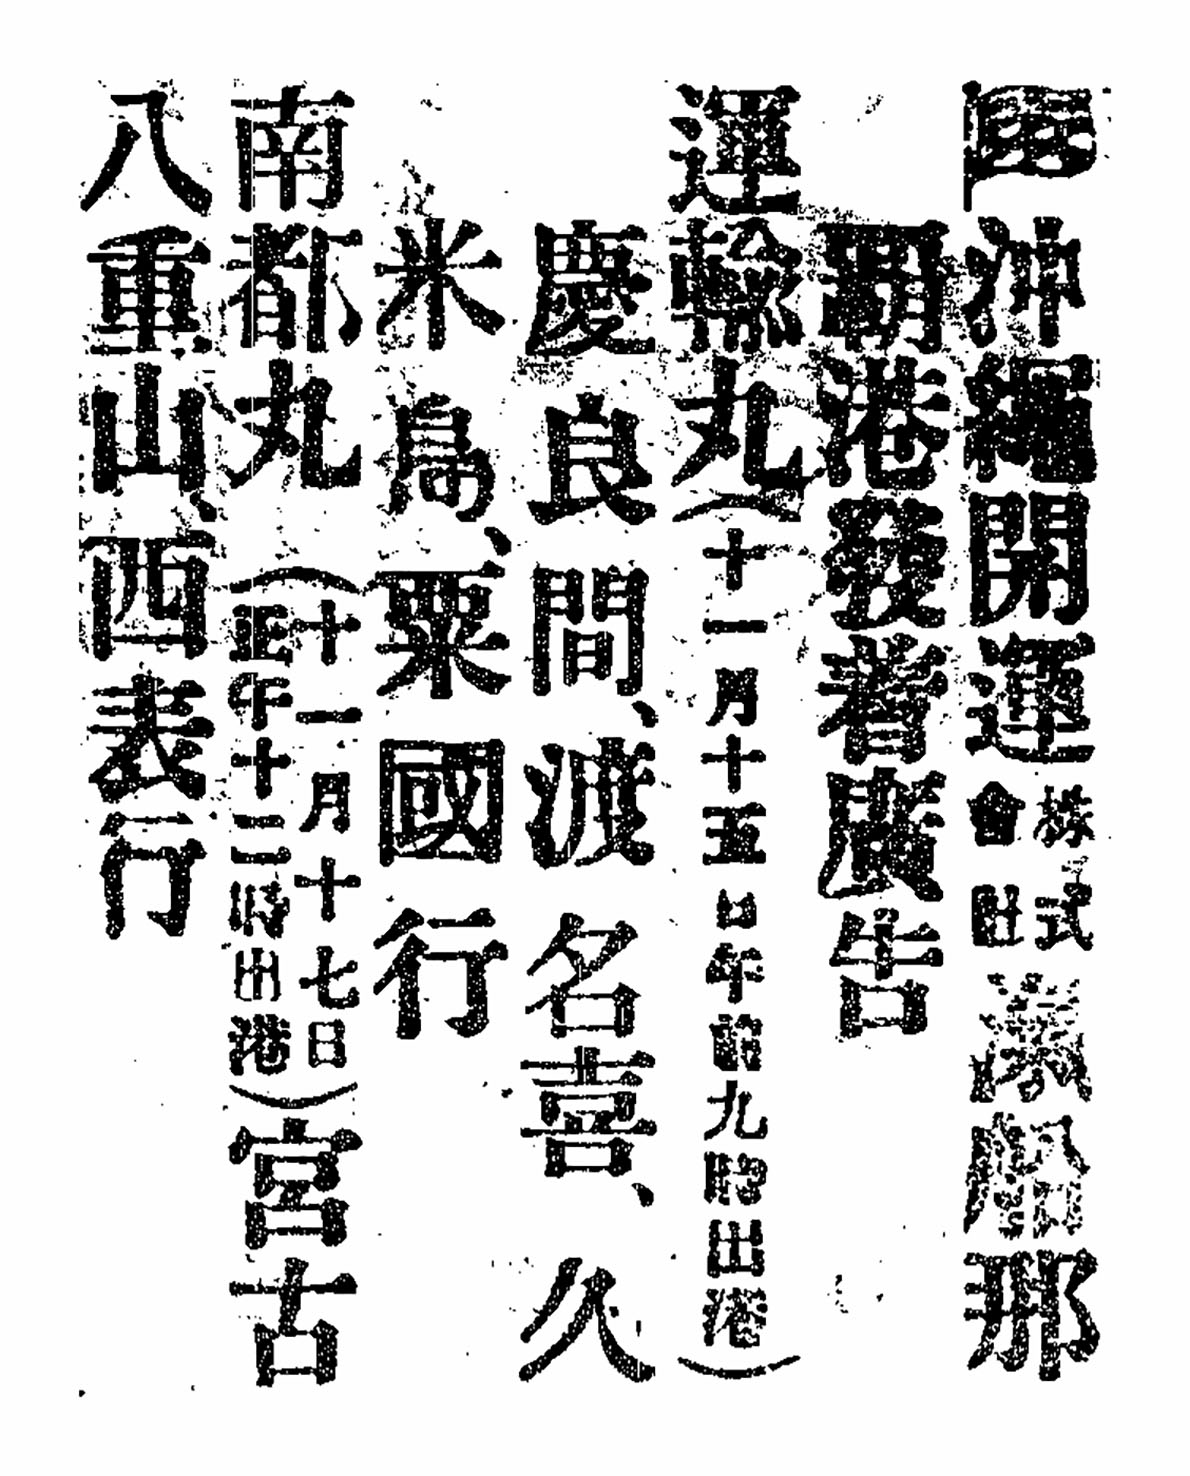 沖繩開運株式會社 船那
覇港發着廣告
運輸丸(十一月十五日午前九時出港)
慶良間、渡名喜、久
米島、粟國行
南都丸(十一月十七日正午十二時出港)宮古
八重山、西表行